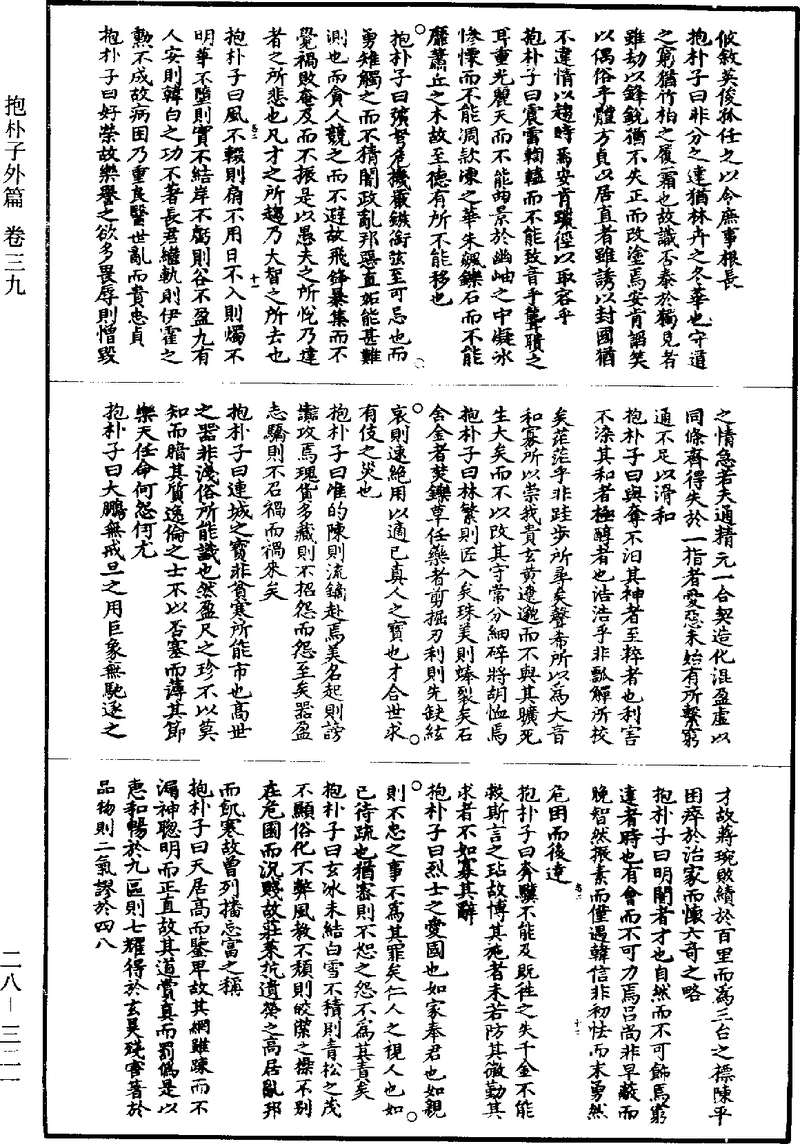 攸敘英俊孤任之以令庶事根長
抱朴子曰非分之達猶林卉之冬華也守道
之窮猶竹柏之履霜也故識否泰於獨見者
雖劫以鋒銳猶不失正而改塗焉安肯諂笑
以偶俗乎體方貞以居直者雖誘以封國猶
不違情以趨時焉安肯躐徑以取容乎
抱朴子曰震雷輷轤而不能致音乎聾聵之
耳重光麗天而不能曲景於幽岫之中凝冰
慘慄而不能凋款凍之華朱飆鑠石而不能
靡蕭丘之木故至德有所不能移也
抱朴子曰彍弩危機嚴鏃銜弦至可忌也而
勇雉觸之而不猜闇政亂邦惡直妬能甚難
測也而貪人競之而不避故飛鋒暴集而不
覺禍敗奄及而不振是以愚夫之所悅乃達
者之所悲也凡才之所趨乃大智之所去也
抱朴子曰風不輟則扇不用日不入則燭不
十一
明華不墮則實不結岸不虧則谷不盈九有
人安則韓白之功不著長君繼軌則伊霍之
勳不成故病困乃重良醫世亂而貴忠貞
抱朴子曰好榮故樂譽之欲多畏辱則憎毀
之情急若夫通精元一合契造化混盈虛以
同條齊得失於一指者愛惡未始有所繫窮
通不足以滑和
抱朴子曰與奪不汩其神者至粹者也利害
不染其和者極醇者也浩浩乎非瓢觶所校
矣茫茫乎非跬步所尋矣聲希所以為大音
和寡所以崇我貴玄黃遼邈而不與其曠死
生大矣而不以改其守常分細碎將胡恤焉
抱朴子曰林繁則匠入矣珠美則蜯裂矣石
含金者焚鑠草任藥者剪掘刃利則先缺絃
哀則速絕用以適已真人之寶也才合世求
有伎之災也
抱朴子曰准的陳則流鏑赴焉美名起則謗
讟攻焉瑰貨多藏則不招怨而怨至矣器盈
志驕則不召禍而禍來矣
抱朴子曰連城之寶非貧寒所能市也高世
之器非淺俗所能識也然盈尺之珍不以莫
知而暗其質逸倫之士不以否塞而薄其節
樂天任命何怨何尤
抱朴子曰大鵬無戒旦之用巨象無馳逐之
才故蔣琬敗績於百里而為三台之標陳平
困瘁於治家而懷六奇之略
抱朴子曰明闇者才也自然而不可飾焉窮
達者時也有會而不可力焉呂尚非早蔽而
晚智然振素而僅遇韓信非初怯而末勇然
十二
危困而後達
抱朴子曰奔驥不能及既往之失千金不能
救斯言之玷故博其施者未若防其微勤其
求者不如寡其辭
抱朴子曰烈士之愛國也如家奉君也如親
則不忠之事不為其罪矣仁人之視人也如
已待疏也猶密則不恕之怨不為其責矣
抱朴子曰玄冰未結白雪不積則青松之茂
不顯俗化不弊風教不頹則皎潔之操不別
在危國而沉賤故莊萊抗遺榮之高居亂邦
而飢寒故曾列播忘富之稱
抱朴子曰天居高而鑒卑故其網雖踈而不
漏神聰明而正直故其道賞真而罰偽是以
惠和暢於九區則七耀得於玄昊殘害著於
品物則二氣謬於四八
抱朴子外篇 卷三九
二八－三二一